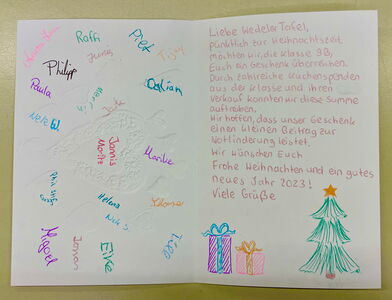 Raffi
Piet
Tjay
Jannis
Philipp
Paula
Oskian
Merle
Nele W.
Jannis
Moritz
Marike
Helena
Nele S.
Miguel
Jonan
Eike
Liebe Wedeler Tafel,
pünktlich zur Weihnachtszeit
möchten wir, die Klasse 9B,
Euch ein Geschenk überreichen.
Durch zahlreiche Kuchenspenden
aus der Klasse und ihren
Verkauf konnten wir diese Summe
auftreiben.
Wir hoffen, dass unser Geschenk
einen kleinen Beitrag zur
Notlinderung leistet.
Wir wünschen Euch
Frohe Weihnachten und ein gutes
neues Jahr 2023!
Viele Grüße